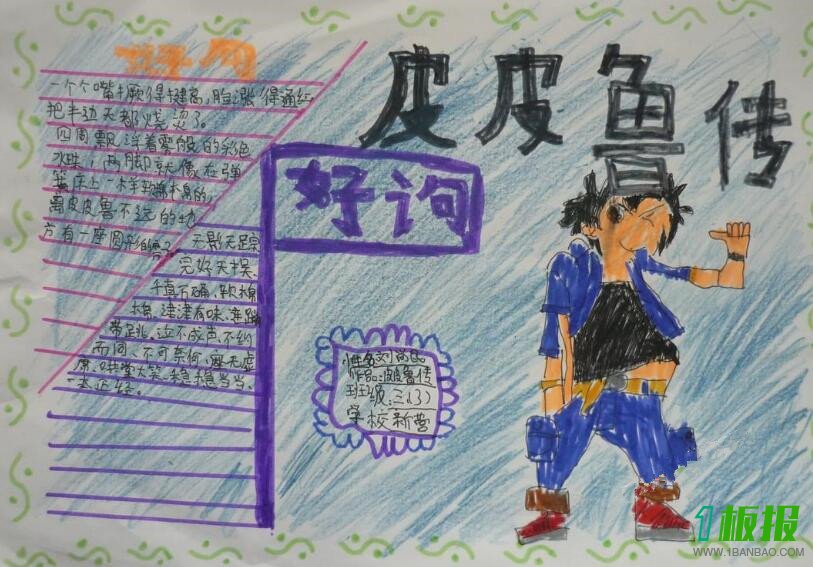 皮皮鲁传
好句
一个个嘴撅得挺高，脸涨得通红
把半边天都烧烫了。
四周飘浮着雾般的彩色
水珠，两脚就像在弹
簧床上一样软绵绵的，
离皮皮鲁不远的地
方有一座圆形的
好词
无影无踪
完好无损、
千真万确、软绵
绵、津津有味、手舞
足蹈、泣不成声、不约
而同、不可奈何、座无虚
席、哄堂大笑、稳稳当当、
一本正经。
姓名:刘
作品:皮皮鲁传
班级:三(3)
学校 新营
1板报
WWW.1BANBAO.COM